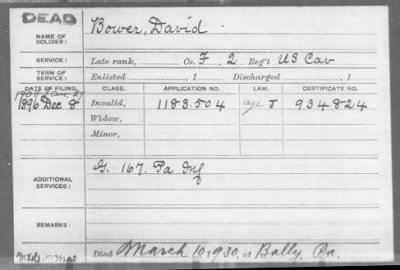 DEAD
NAME OF SOLDIER:
Bower, David
SERVICE:
Late rank, Co. F, 2 Reg't US Cav
TERM OF SERVICE:
Enlisted , 1 Discharged , 1
DATE OF FILING. CLASS. APPLICATION NO. LAW. CERTIFICATE NO.
1896 Dec 8 Invalid, 1183.504 age J 934824
Widow,
Minor,
ADDITIONAL SERVICES:
G. 167. Pa Inf
REMARKS:
Died March 10, 1930, at Bally, Pa.